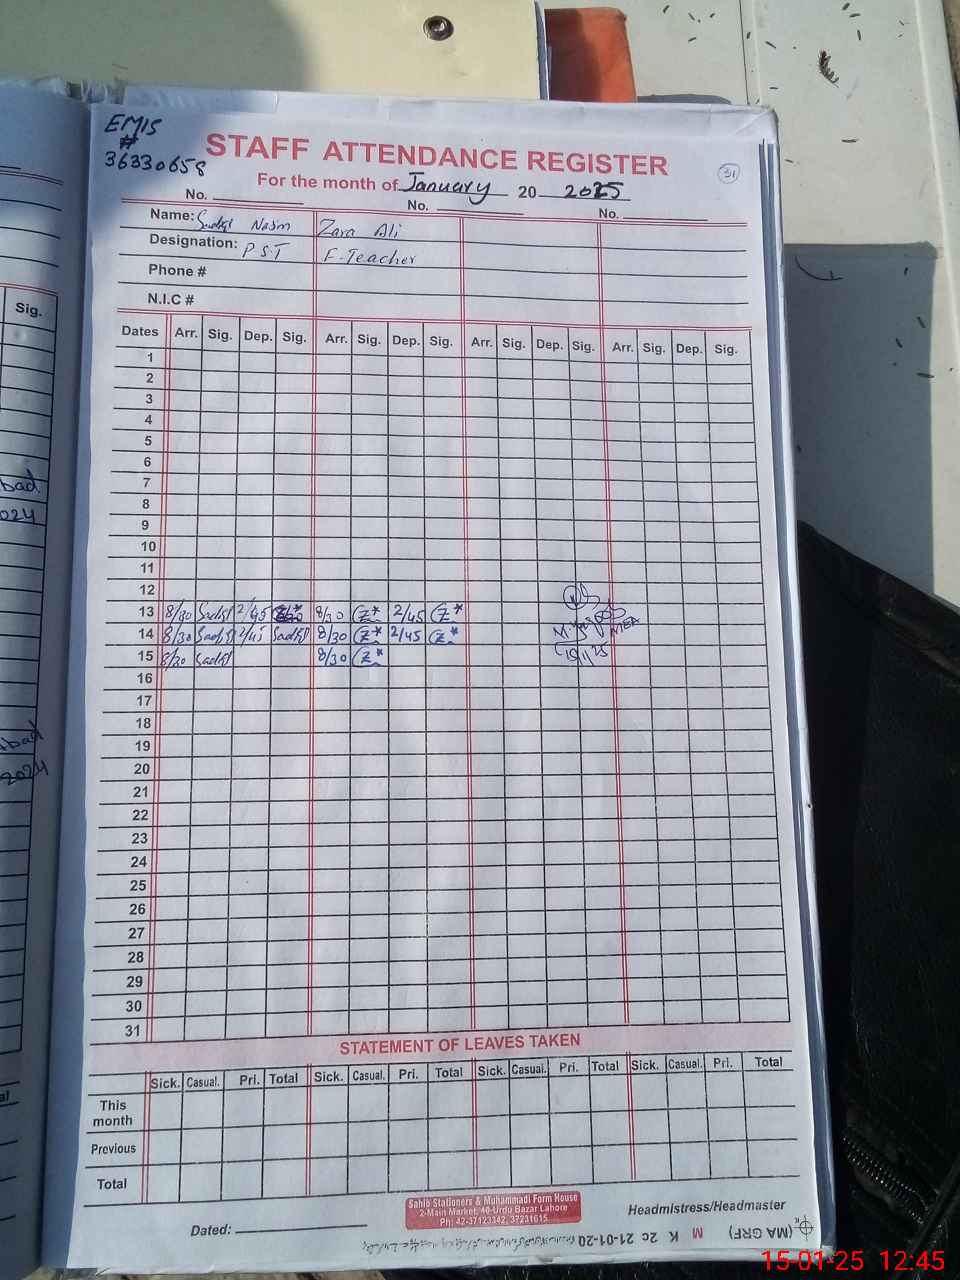 EMIS
#
36330658
STAFF ATTENDANCE REGISTER
31
For the month of January 20 2025
No. No. No.
Name: Nasim Zara Ali
Designation: P.S.T F.Teacher
Phone #
N.I.C #
Sig.
Dates Arr. Sig. Dep. Sig. Arr. Sig. Dep. Sig. Arr. Sig. Dep. Sig. Arr. Sig. Dep. Sig.
1
2
3
4
5
6
7
bad
8
2024
9
10
11
12
13 8/30 2/45 8/30 Z* 2/45 Z*
14 8/30 2/45 8/30 Z* 2/45 Z*
MEA
15 8/30 8/30 Z*
15/1/25
16
17
18
bad
19
2024
20
21
22
23
24
25
26
27
28
29
30
31
STATEMENT OF LEAVES TAKEN
Sick. Casual. Pri. Total Sick. Casual. Pri. Total Sick. Casual. Pri. Total Sick. Casual. Pri. Total
This month
Previous
Total
Sahib Stationers & Muhammadi Form House
2-Main Market, 40-Urdu Bazar Lahore
Ph: 42-37123342, 37231615
Headmistress/Headmaster
Dated:
(MA GRF) M K 2c 21-01-20
15-01-25 12:45